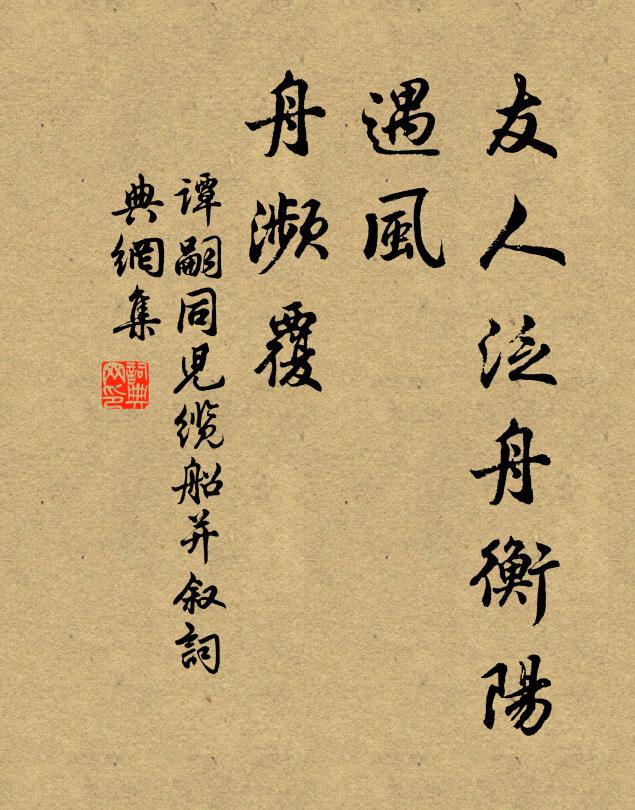 友人泛舟衡陽
遇風
舟瀕覆
谭嗣同児纜船并叙詞
典網集
詞典网印